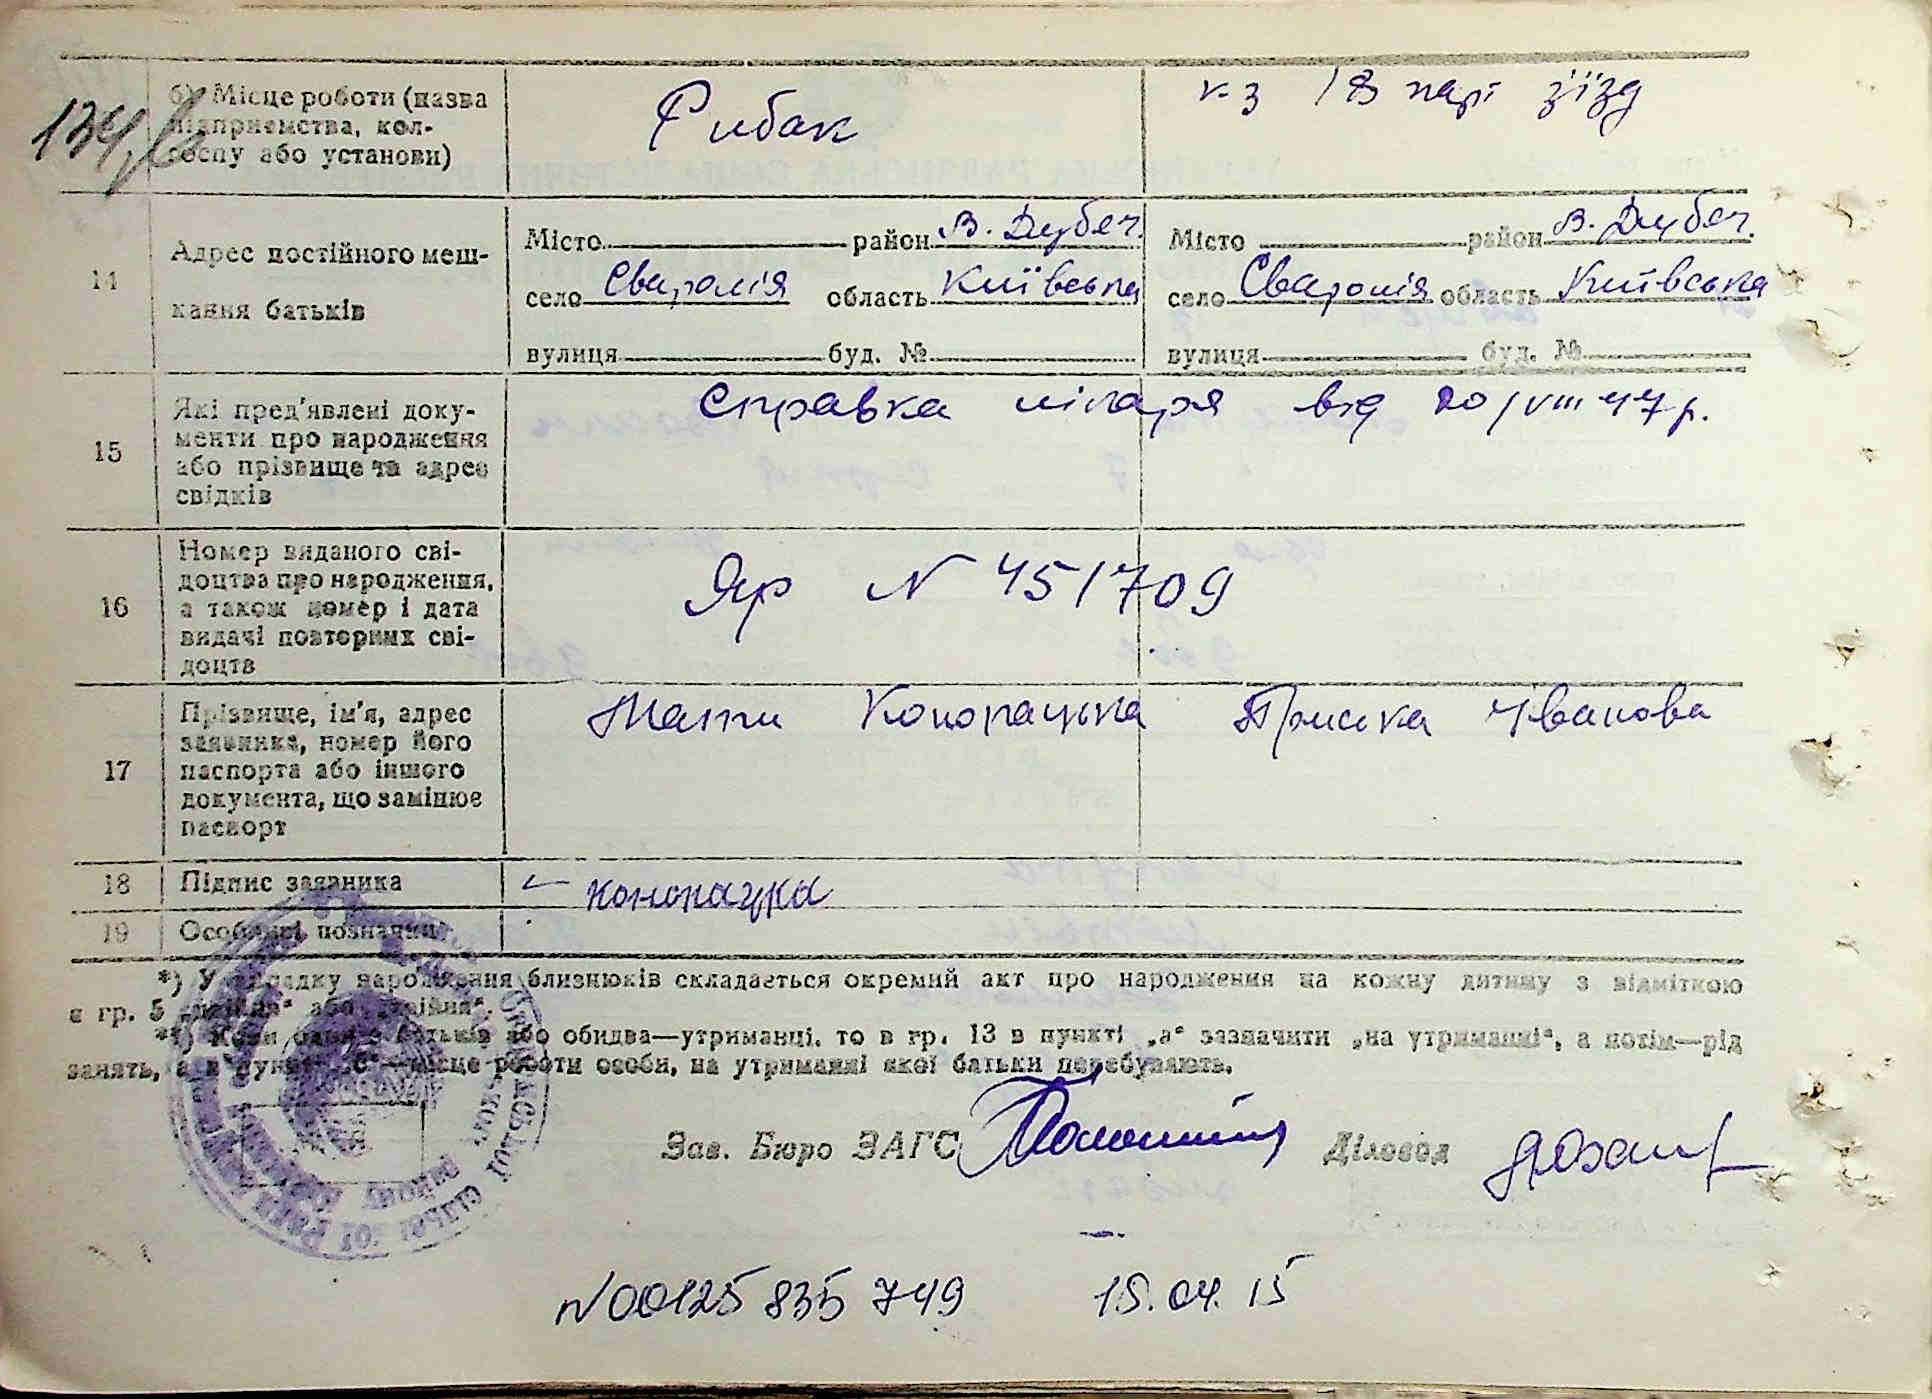 134
б) Місце роботи (назва
підприємства, кол-
госпу або установи)
Рибак
к-з 18 парт з'їзд
14
Адрес постійного меш-
кання батьків
Місто район В. Дубеч.
село Сваромія область Київська
вулиця буд. №
Місто район В. Дубеч.
село Сваромія область Київська
вулиця буд. №
15
Які пред'явлені доку-
менти про народження
або прізвище та адрес
свідків
Справка лікаря від 20/VIII 47 р.
16
Номер виданого сві-
доцтва про народження,
а також номер і дата
видачі повторних сві-
доцтв
Яр N 451709
17
Прізвище, ім'я, адрес
заявника, номер його
паспорта або іншого
документа, що замінює
паспорт
Мати Конопацька Пріська Іванова
18
Підпис заявника
конопацка
19
Особливі позначки
*) У випадку народження близнюків складається окремий акт про народження на кожну дитину з відміткою
в гр. 5 „двійня“ або „трійня“.
**) Коли один з батьків або обидва—утриманці, то в гр. 13 в пункті „а“ зазначити „на утриманні“, а потім—рід
занять, а в пункті „б“—місце роботи особи, на утриманні якої батьки перебувають.
Зав. Бюро ЗАГС
Діловод
N00125 835 749 15.04.15